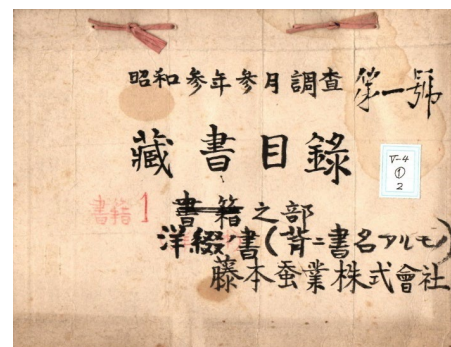 昭和参年参月調査 第一號
藏書目錄
V-4
①
2
書籍1
書籍之部
洋綴書(背ニ書名アルモノ)
藤本蚕業株式會社